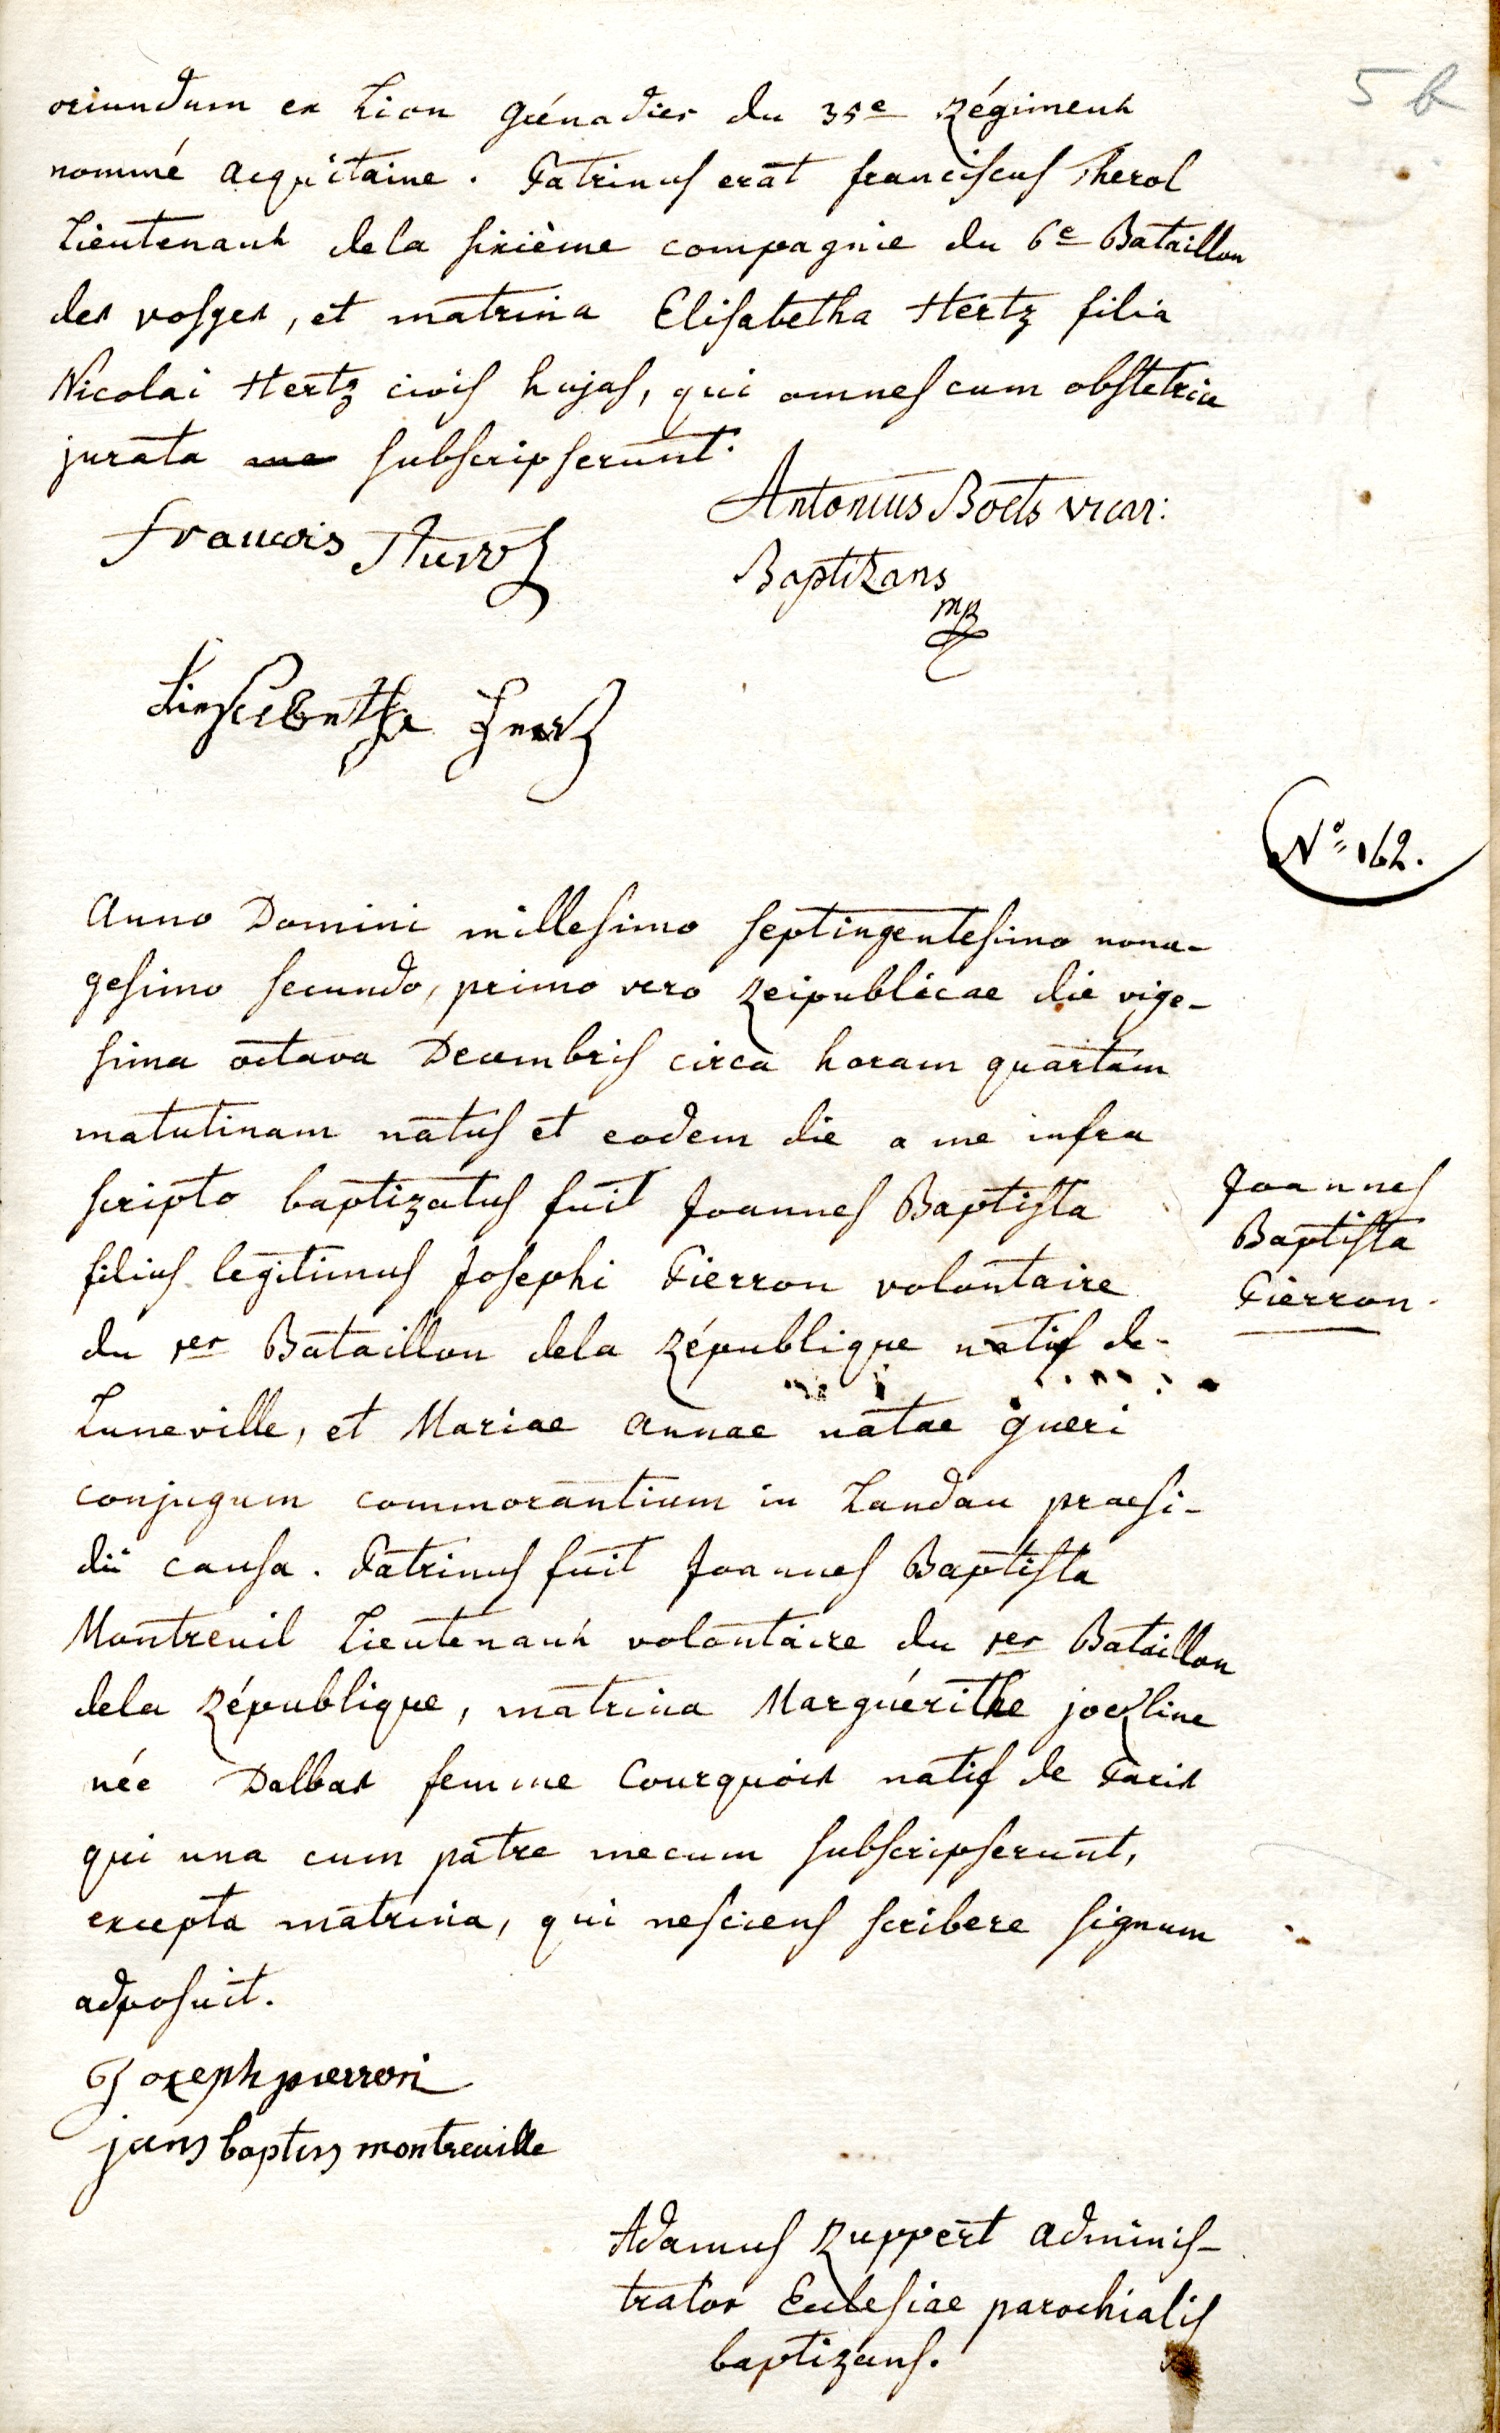 5 b
oriundum ex Lion Grénadier du 35e Régiment
nommé Acquitaine. Patrinus erat franciscus Therol
Lieutenant dela sixième compagnie du 6e Bataillon
des vosges, et matrina Elisabetha Hertz filia
Nicolai Hertz civis hujas, qui omnes cum obstetrice
jurata me subscripserunt.
Antonius Boets vicar:
francois
Baptizans
mp
N° 162.
Anno Domini millesimo septingentesimo nona-
gesimo secundo, primo vero Reipublicae die vige-
sima octava Decembris circa horam quartam
matutinam natus et eodem die a me infra
scripto baptizatus fuit Joannes Baptista
filius legitimus Josephi Pierron volontaire
du 1er Bataillon dela République natif de
Luneville, et Mariae Annae natae Gueri
conjugum commorantium in Landau praesi-
dii causa. Patrinus fuit Joannes Baptista
Montreuil Lieutenant volontaire du 1er Bataillon
dela République, matrina Marguérithe
née Dalbas femme Courquois natif de Paris
qui una cum patre mecum subscripserunt,
excepta matrina, qui nesciens scribere signum
adposuit.
Joannes
Baptista
Pierron.
Joxeph pierron
jans baptis montreuille
Adamus Ruppert Adminis-
trator Ecclesiae parochialis
baptizans.